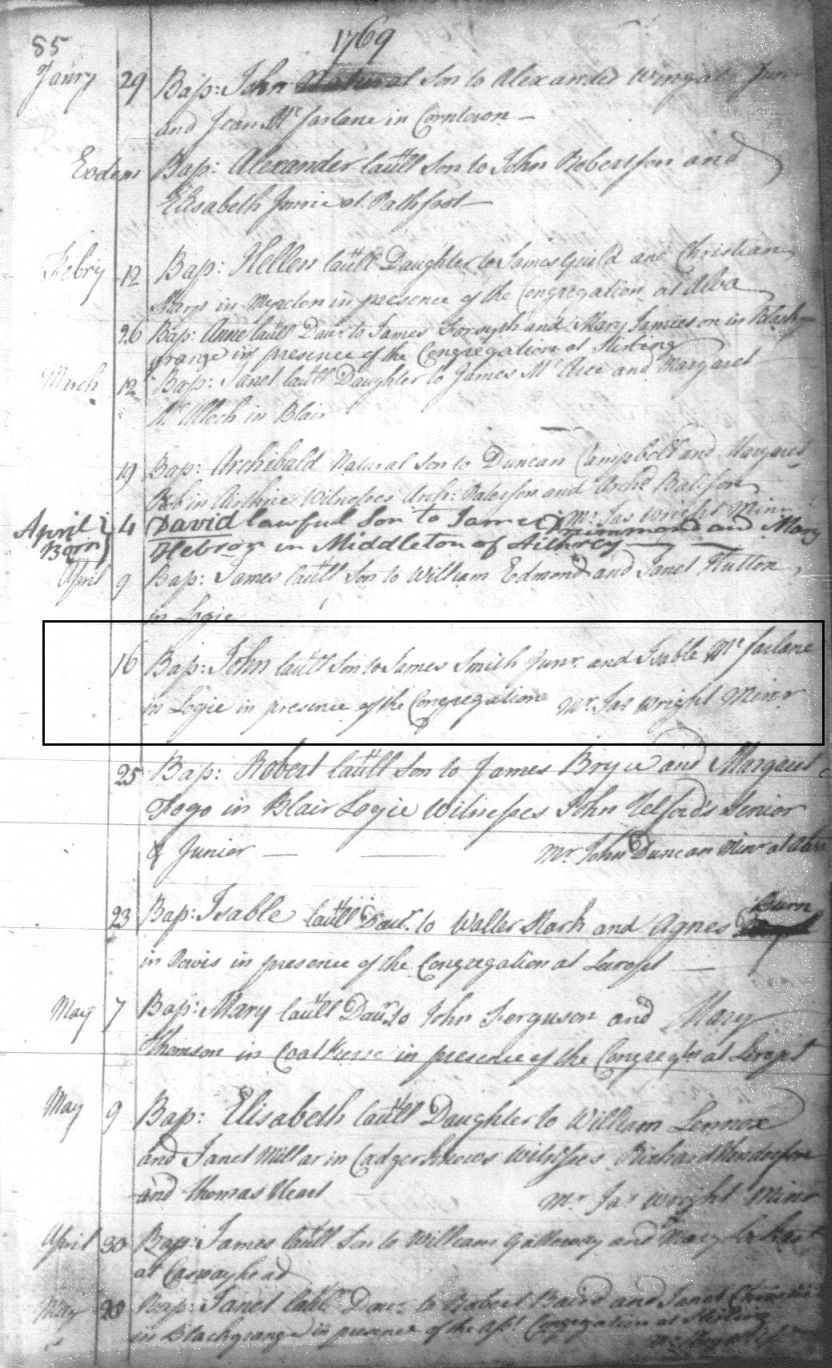 85 1769
Janry 29 Bap: John Natural Son to Alexander Wingate Junr
and Jean Mc farlane in Corntown
Eodem Bap: Alexander laull Son to John Robertson and
Elisabeth at Pathfoot
Febry 12 Bap: Hellen laull Daughter to James Guild and Christian
in in presence of the Congregation at Alva
26 Bap: Anne laull Daur to James Forsyth and Mary Jamieson in Black-
grange in presence of the Congregation at Stirling
March 12 Bap: Janet laull Daughter to James Mc and Margaret
in Blair
19 Bap: Archibald Natural Son to Duncan Campbell and Margaret
in Airthrie Witnesses Paterson and
Mr Jas Wright Minr
April Born 4 David lawful Son to James Drummond and Mary
in Middleton of
April 9 Bap: James laull Son to William Edmond and Janet Hutton
in Logie
16 Bap: John laull Son to James Smith Junr. and Isable Mc farlane
in Logie in presence of the Congregation Mr. Jas Wright Minr
25 Bap: Robert laull Son to James Bryce and Margaret
Fogo in Blair Logie Witnesses John Telford's Senior
& Junior Mr John Duncan Minr at Alva
23 Bap: Isable laull Daur. to Walter Stark and Agnes Burn
in Powis in presence of the Congregation at
May 7 Bap: Mary laull Daur. to John Ferguson and Mary
Thomson in in presence of the Congregtn at
May 9 Bap: Elisabeth laull Daughter to William Lennox
and Janet Millar in Witnesses Richard Henderson
and Thomas Mr Jas Wright Minr
April 30 Bap: James laull Son to William Galloway and Mary
at Causwayhead
May 28 Bap: Janet laull Daur to Robert Baird and Janet Christie
in Blackgrange in presence of the Congregation at Stirling